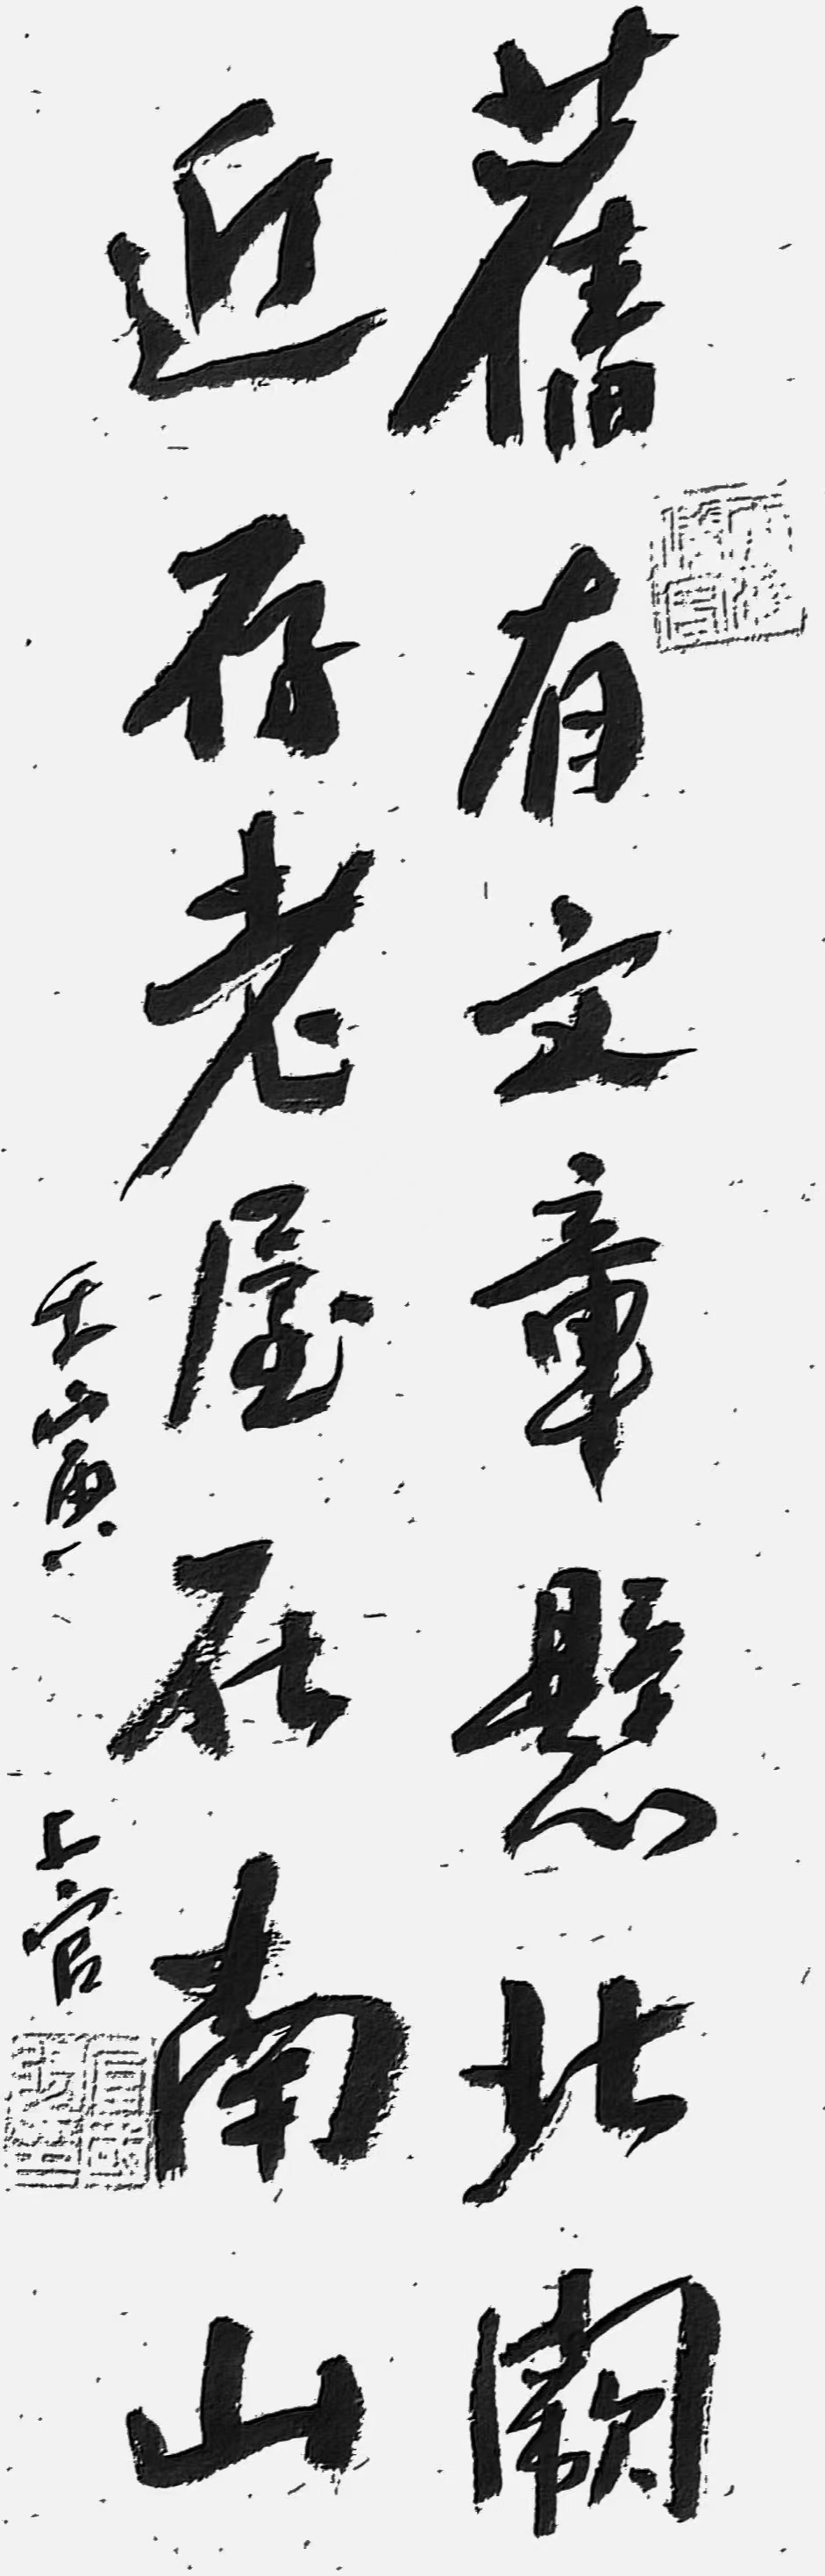 舊有文章懸北闕
近存老屋在南山
壬寅
上官